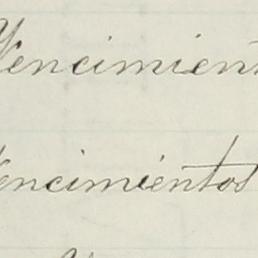 Vencimient
encimientos